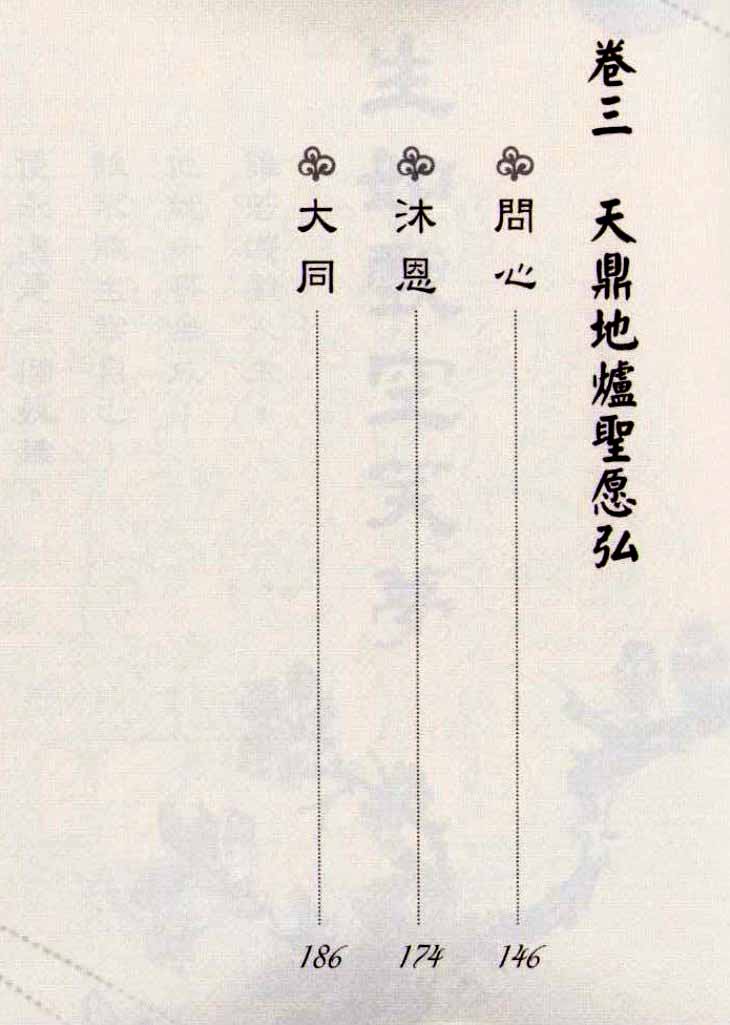 卷三 天鼎地爐聖愿弘
問心 146
沐恩 174
大同 186